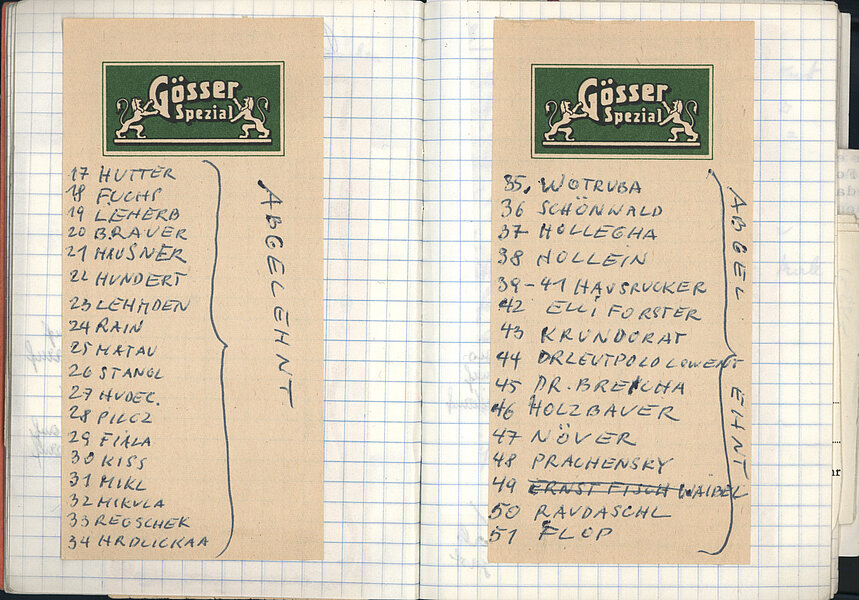 Gösser
Spezial
17 HUTTER
18 FUCHS
19 LEHERB
20 BRAUER
21 HAUSNER
22 HUNDERT
23 LEHMDEN
24 RAIN
25 MATAU
26 STANGL
27 HUDEC.
28 PILCZ
29 FIALA
30 KISS
31 MIKL
32 MIKULA
33 REGSCHEK
34 HRDLICKAA
ABGELEHNT
Gösser
Spezial
35. WOTRUBA
36 SCHÖNWALD
37 HOLLEGHA
38 HOLLEIN
39-41 HAUSRUCKER
42 ELLI FORSTER
43 KRUNDORAT
44 DR LEUTPOLD LOWENT
45 DR. BREICHA
46 HOLZBAUER
47 NÖVER
48 PRACHENSKY
49 ERNST FISCH WAIBEL
50 RAUDASCHL
51 FLOP
ABGEL EHNT